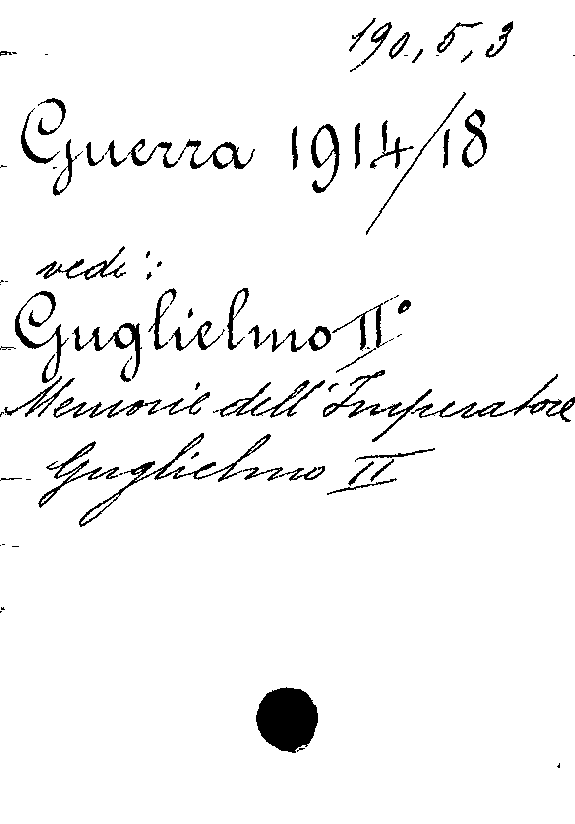 190,5,3
Guerra 1914/18
vedi:
Guglielmo II°
Memorie dell'Imperatore
Guglielmo II